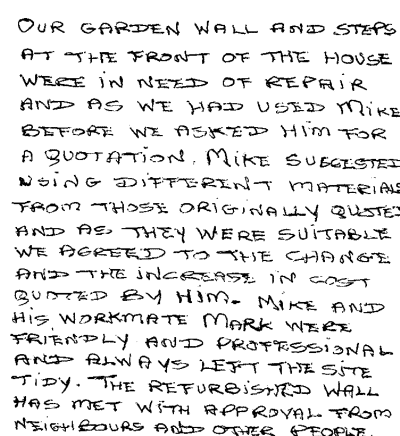 OUR GARDEN WALL AND STEPS
AT THE FRONT OF THE HOUSE
WERE IN NEED OF REPAIR
AND AS WE HAD USED MIKE
BEFORE WE ASKED HIM FOR
A QUOTATION. MIKE SUGGESTED
USING DIFFERENT MATERIALS
FROM THOSE ORIGINALLY QUOTED
AND AS THEY WERE SUITABLE
WE AGREED TO THE CHANGE
AND THE INCREASE IN COST
QUOTED BY HIM. MIKE AND
HIS WORKMATE MARK WERE
FRIENDLY AND PROFESSIONAL
AND ALWAYS LEFT THE SITE
TIDY. THE REFURBISHED WALL
HAS MET WITH APPROVAL FROM
NEIGHBOURS AND OTHER PEOPLE.